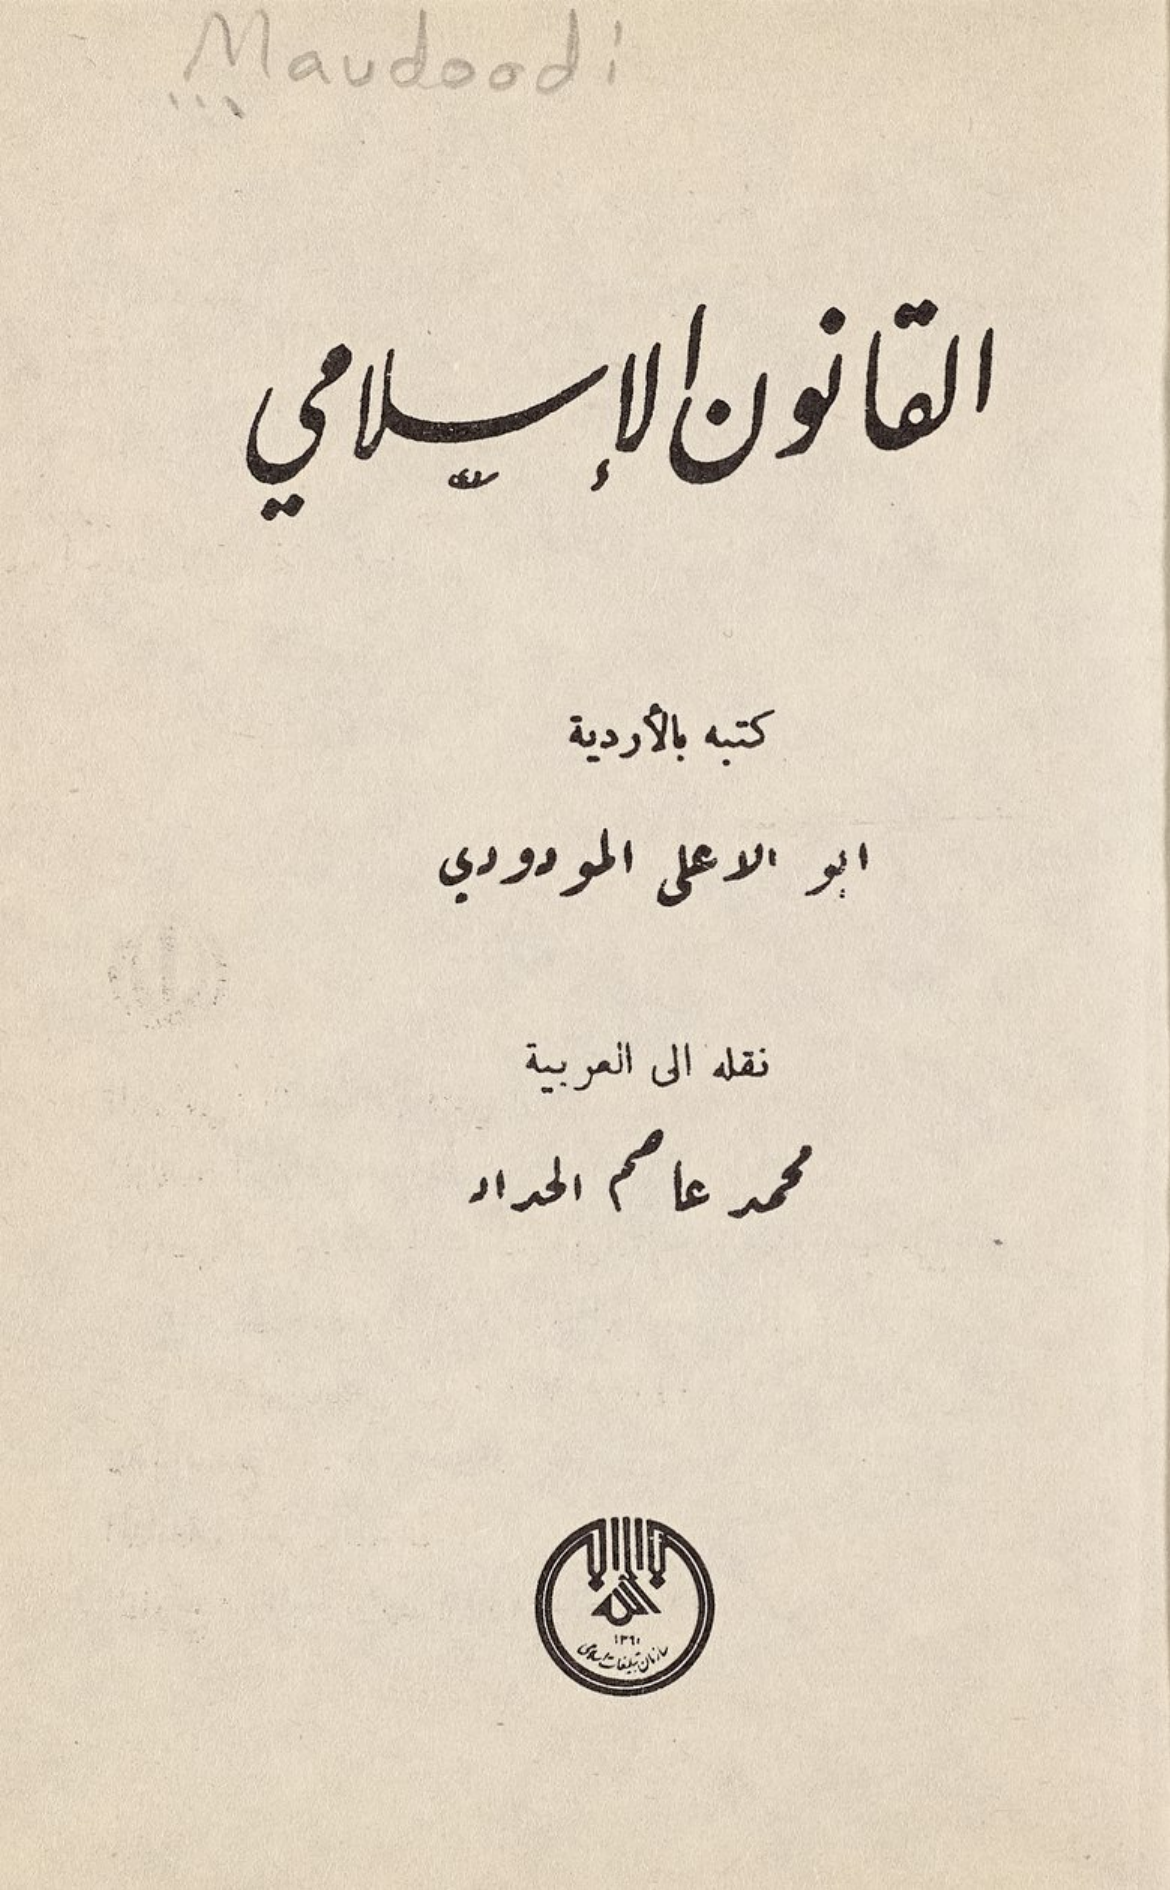 Maudoodi
القانون الإسلامي
كتبه بالأردية
ابو الاعلى المودودي
نقله الى العربية
محمد عاصم الحداد
الله
١٣٦٠
سازمان تبلیغات اسلامی